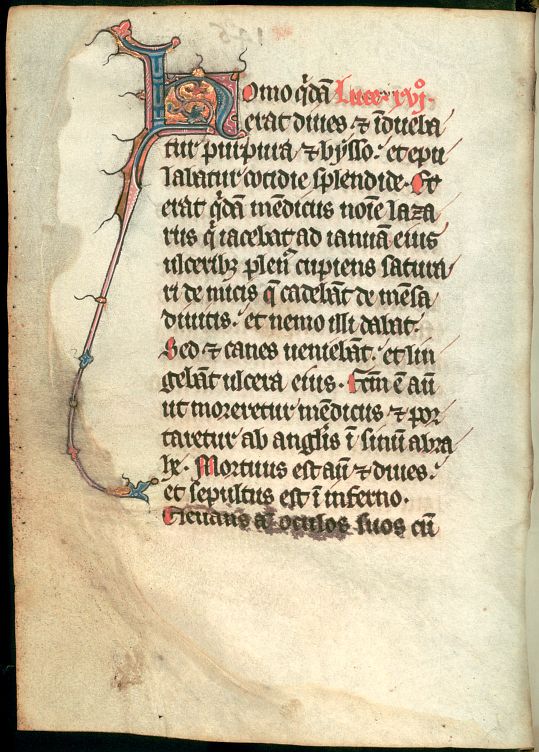 Homo q̄dā Luce · xvjº ·
erat diues ⁊ īdueba
tur purpura ⁊ bysso : et epu
labatur cotidie splendide · Et
erat q̄dā mēdicus noīe laza
rus q̄ iacebat ad ianuā eius
ulceribꝫ plen᷒ cupiens satura
ri de micis q̄ cadebāt de mēsa
diuitis · et nemo illi dabat ·
Sed ⁊ canes ueniebāt · et lin
gebāt ulcera eius · Fcm̄ ē aū
ut moreretur mēdicus ⁊ por
taretur ab anglis ī sinū abra
he · Mortuus est aū ⁊ diues :
et sepultus est ī inferno ·
Eleuans oculos suos cū